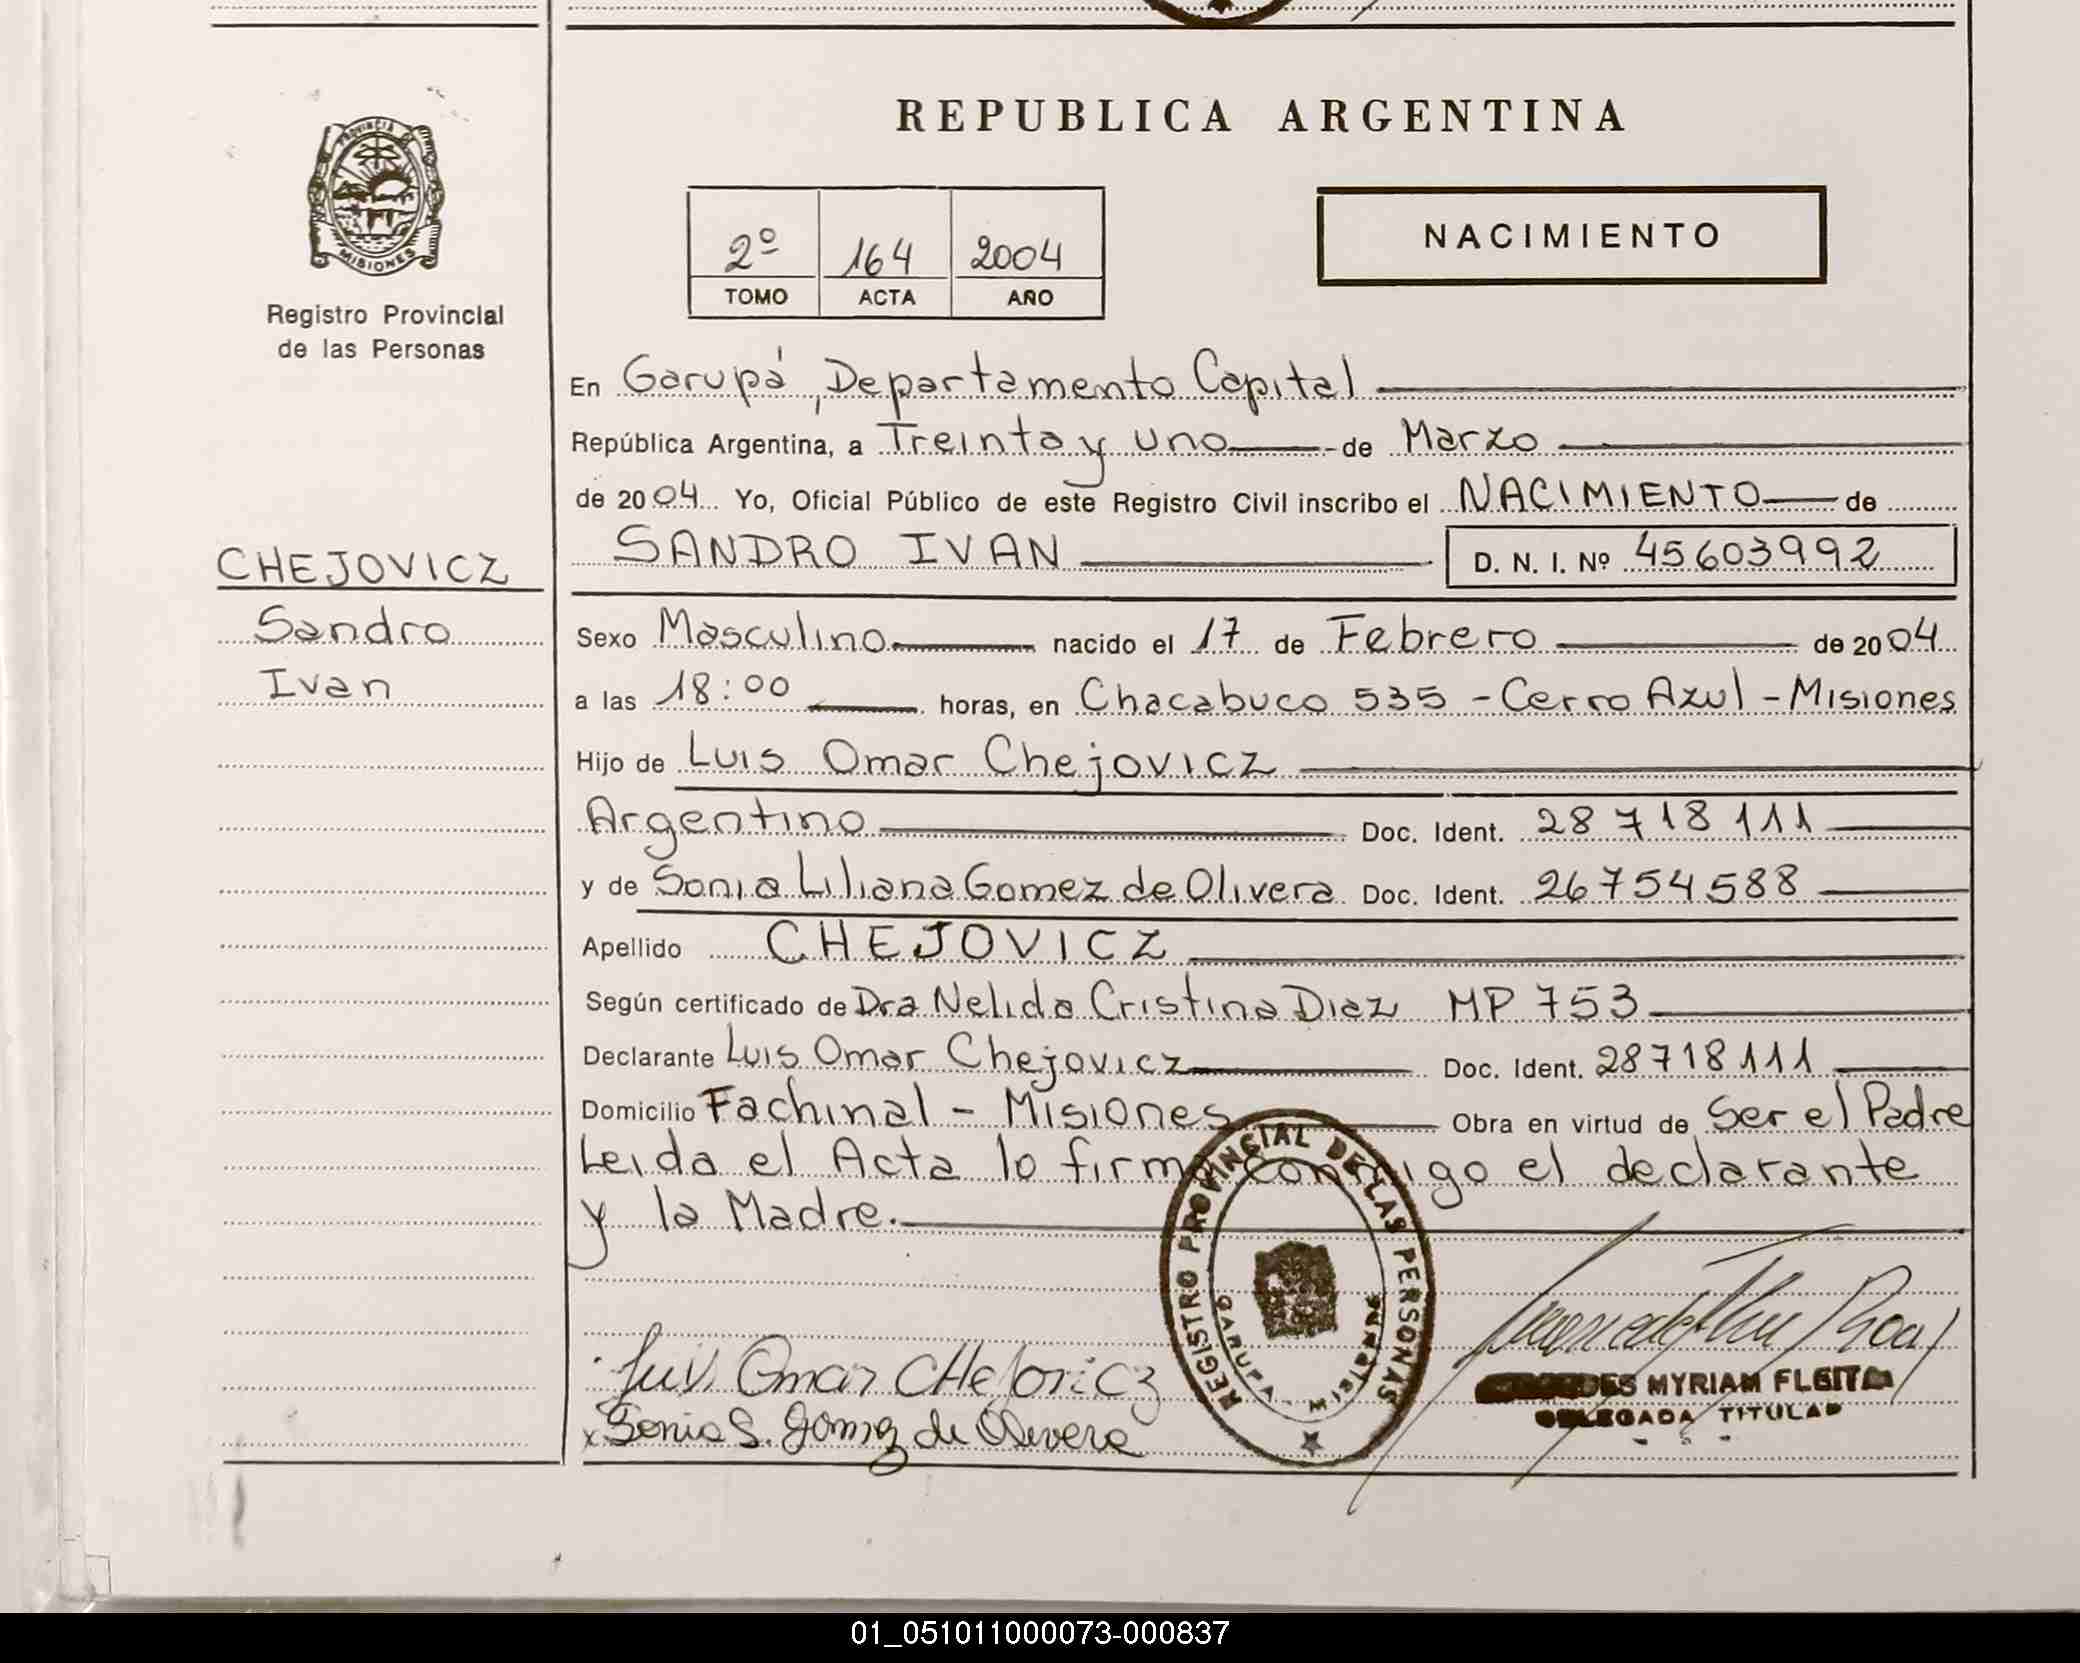 REPUBLICA ARGENTINA
PROVINCIA DE
MISIONES
Registro Provincial
de las Personas
2º 164 2004
TOMO ACTA AÑO
NACIMIENTO
En Garupá, Departamento Capital
República Argentina, a Treinta y uno de Marzo
de 2004 Yo, Oficial Público de este Registro Civil inscribo el NACIMIENTO de
SANDRO IVAN D. N. I. Nº 45603992
CHEJOVICZ
Sandro
Ivan
Sexo Masculino nacido el 17 de Febrero de 2004
a las 18:00 horas, en Chacabuco 535 - Cerro Azul - Misiones
Hijo de Luis Omar Chejovicz
Argentino Doc. Ident. 28718111
y de Sonia Liliana Gomez de Olivera Doc. Ident. 26754588
Apellido CHEJOVICZ
Según certificado de Dra Nelida Cristina Diaz MP 753
Declarante Luis Omar Chejovicz Doc. Ident. 28718111
Domicilio Fachinal - Misiones Obra en virtud de Ser el Padre
Leida el Acta lo firma conmigo el declarante
y la Madre.
REGISTRO PROVINCIAL DE LAS PERSONAS
GARUPA
Luis Omar CHejovicz
x Sonia L. Gomez de Olivera
MYRIAM FLEITA
DELEGADA TITULAR
01_051011000073-000837